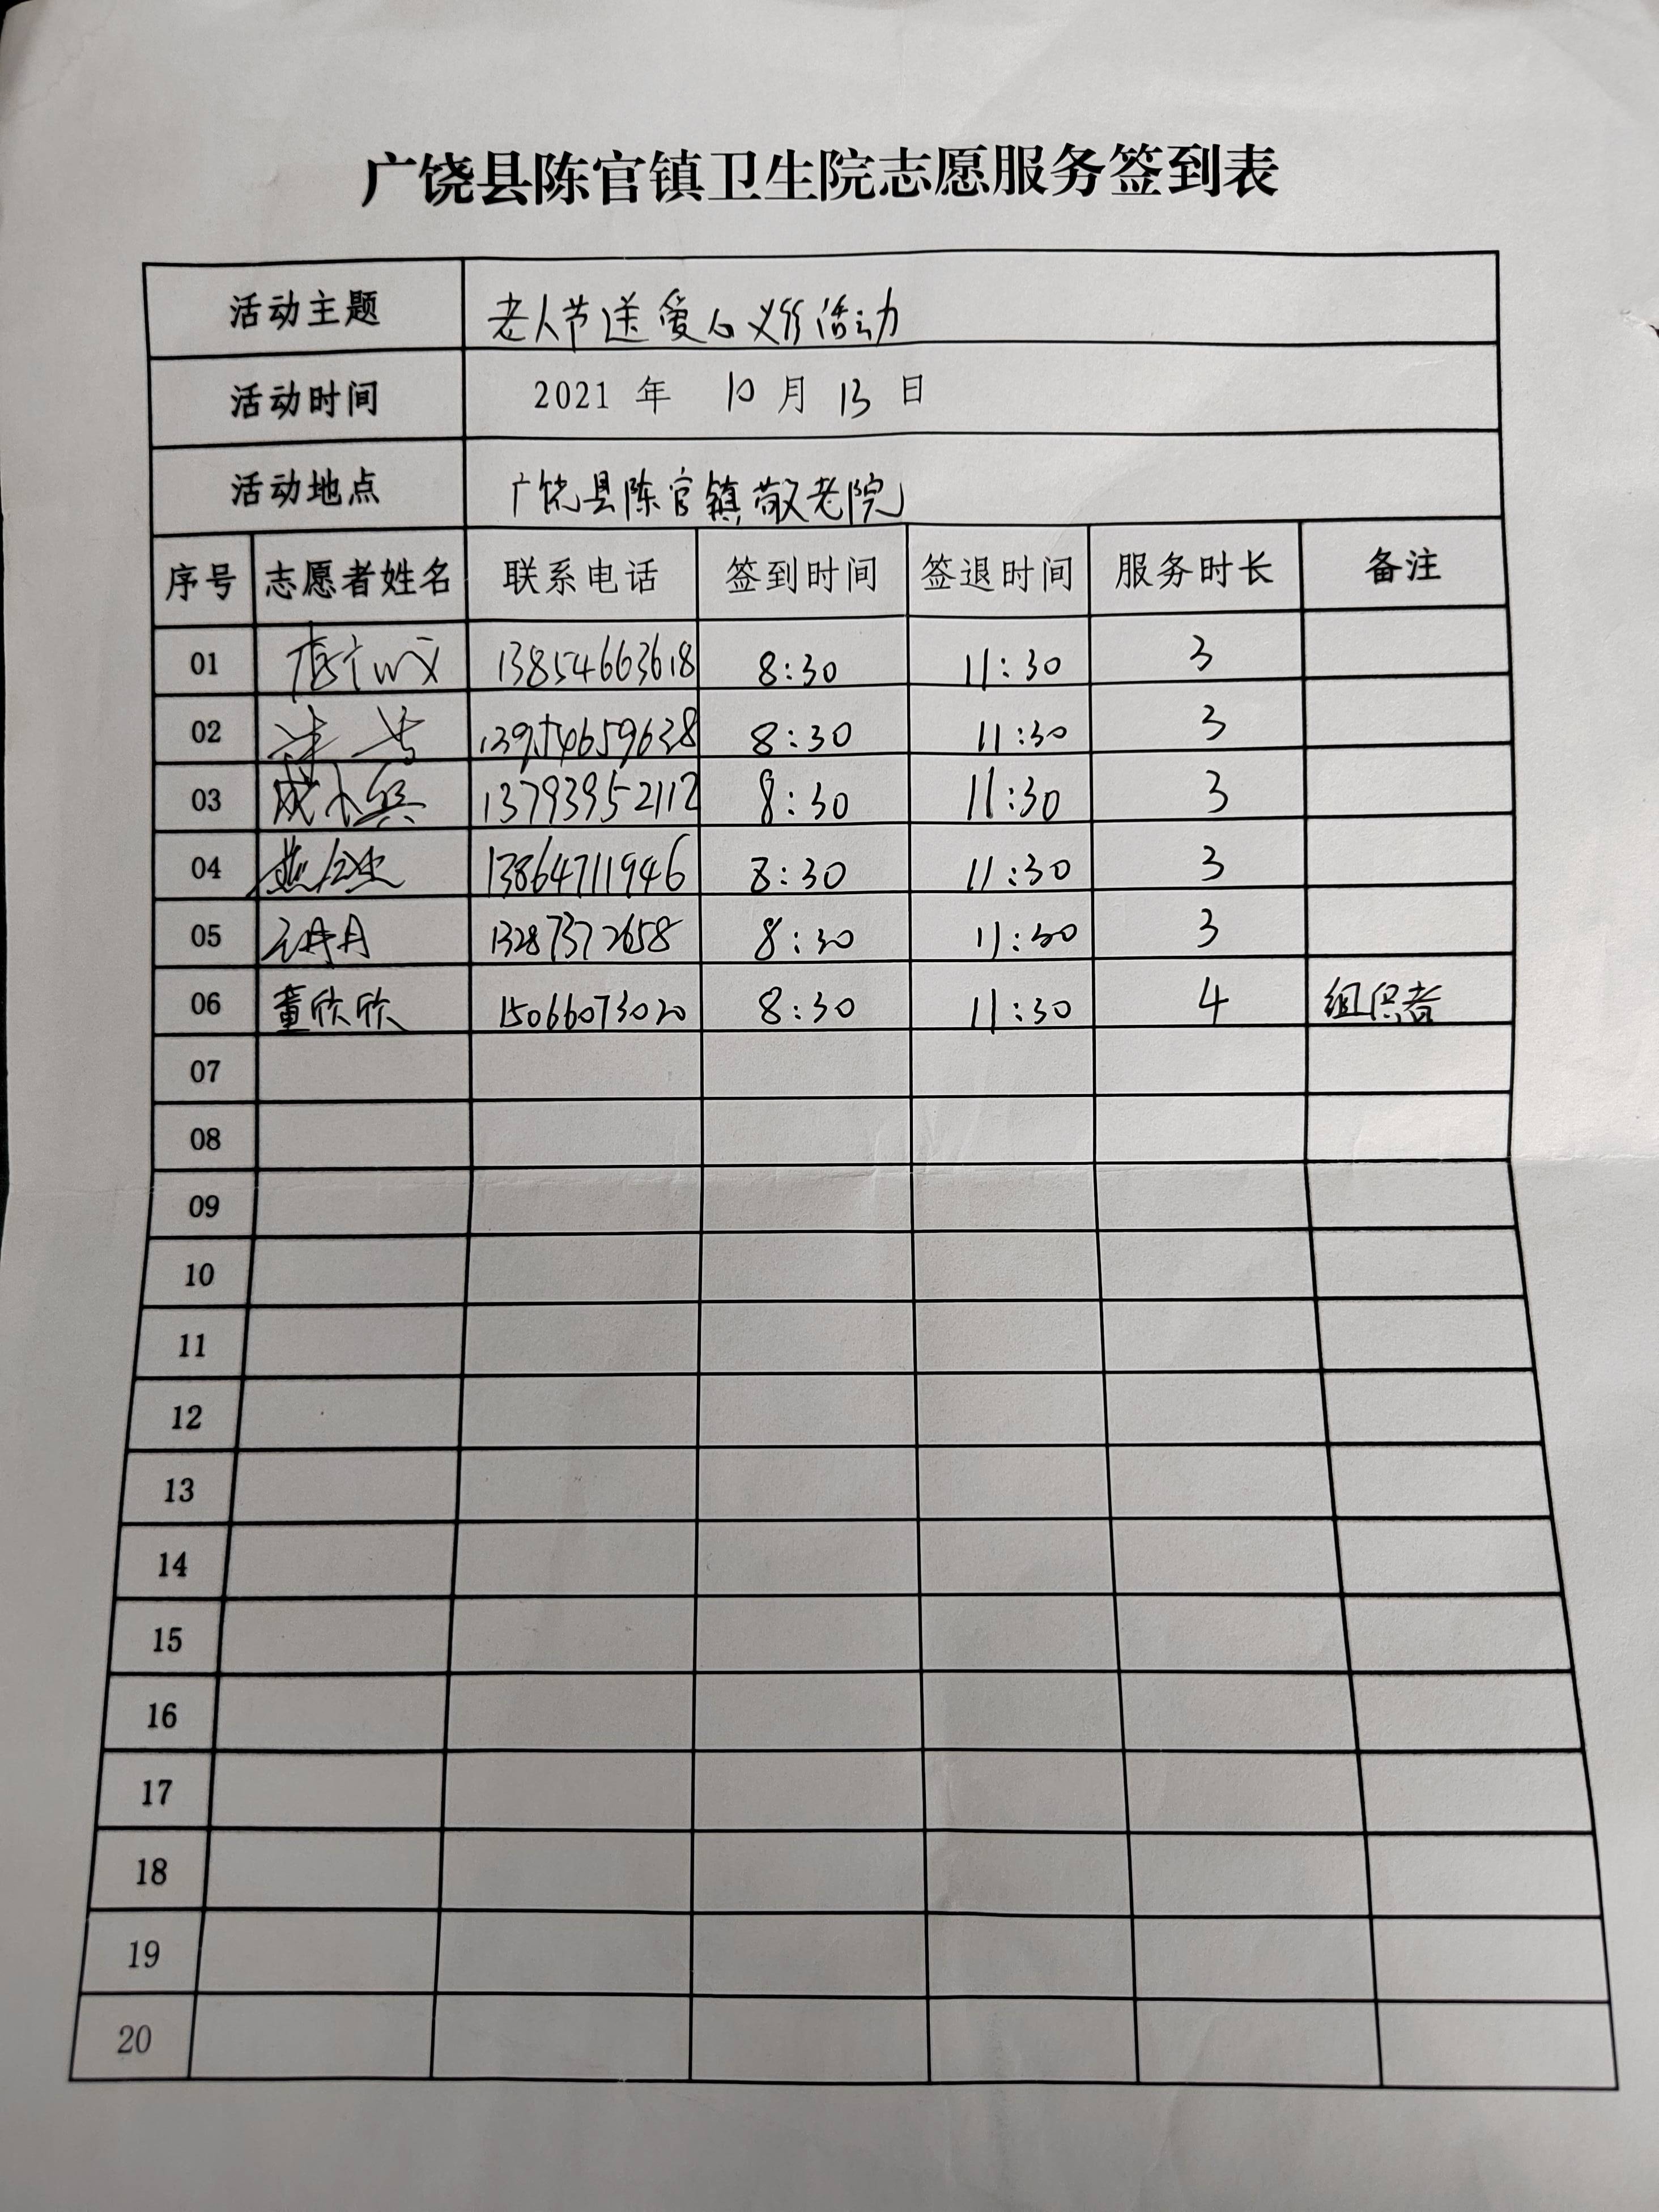 广饶县陈官镇卫生院志愿服务签到表
活动主题 老人节送爱心义诊活动
活动时间 2021 年 10 月 13 日
活动地点 广饶县陈官镇敬老院
序号 志愿者姓名 联系电话 签到时间 签退时间 服务时长 备注
01 13854663618 8:30 11:30 3
02 13954659638 8:30 11:30 3
03 成小兵 13793952112 8:30 11:30 3
04 13864711946 8:30 11:30 3
05 13287372658 8:30 11:30 3
06 董欣欣 15066073020 8:30 11:30 4 组织者
07
08
09
10
11
12
13
14
15
16
17
18
19
20